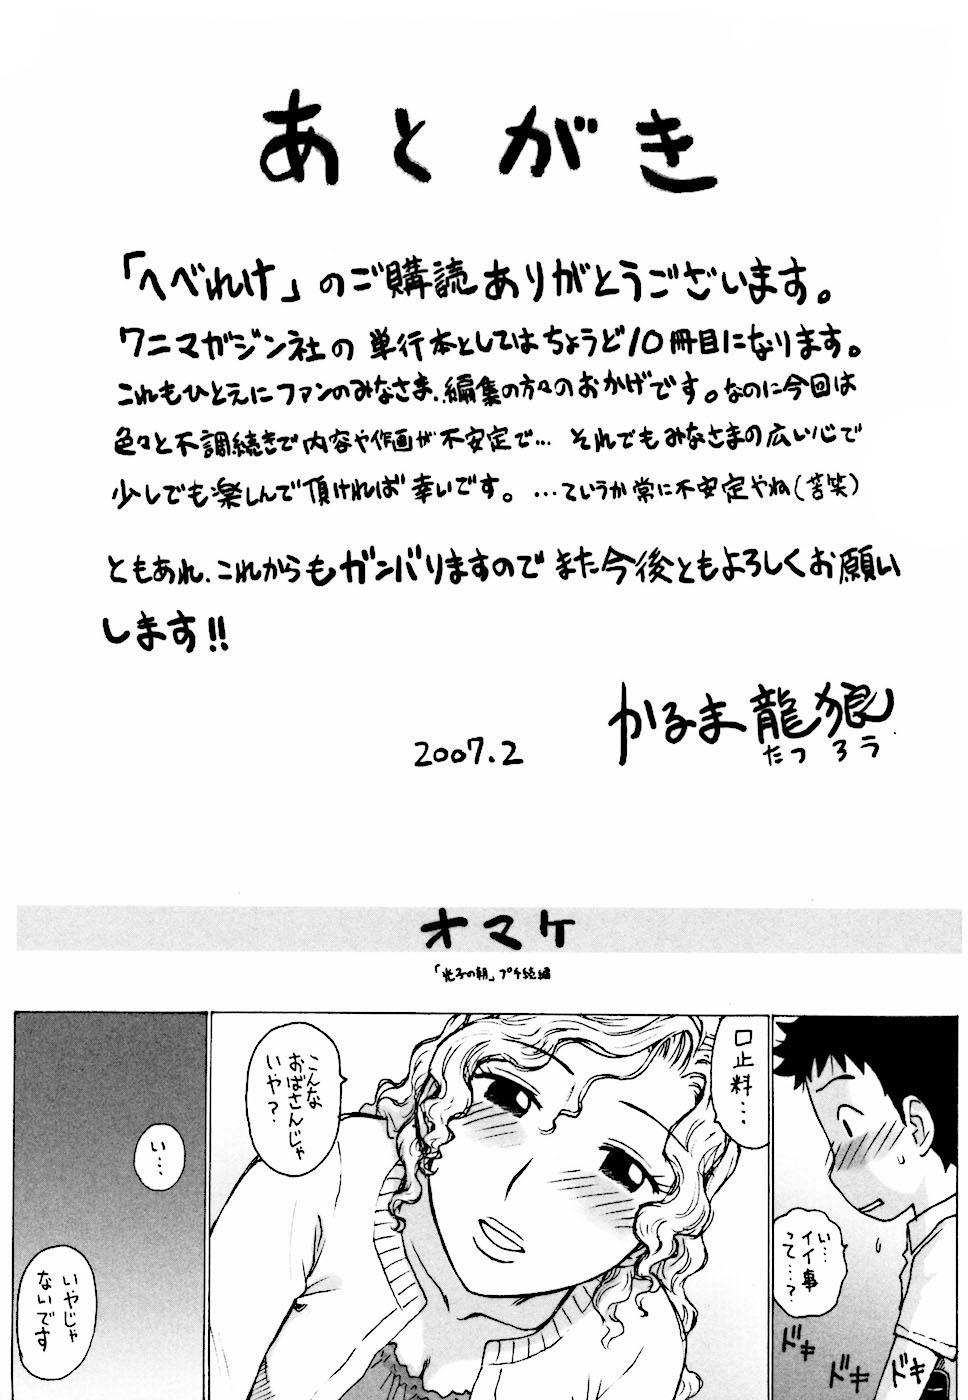 あとがき
「へべれけ」のご購読ありがとうございます。
ワニマガジン社の単行本としてはちょうど10冊目になります。
これもひとえにファンのみなさま、編集の方々のおかげです。なのに今回は
色々と不調続きで内容や作画が不安定で… それでもみなさまの広い心で
少しでも楽しんで頂ければ幸いです。…ていうか常に不安定やね(苦笑)
ともあれ、これからもガンバりますのでまた今後ともよろしくお願い
します!!
かるま龍狼
たつ ろう
2007.2
オマケ
「光子の朝」プチ続編
い…
イイ事
って…?
ドキ
ドキ
ドキ
口止料…
こんな
おばさんじゃ
いや?
い…
いやじゃ
ないです